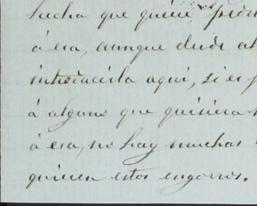 hecha que quiere
á esa, aunque desde
introducirla aquí, si es
á alguno que quisiera
á esa, no hay muchas
quieren estos engorros.